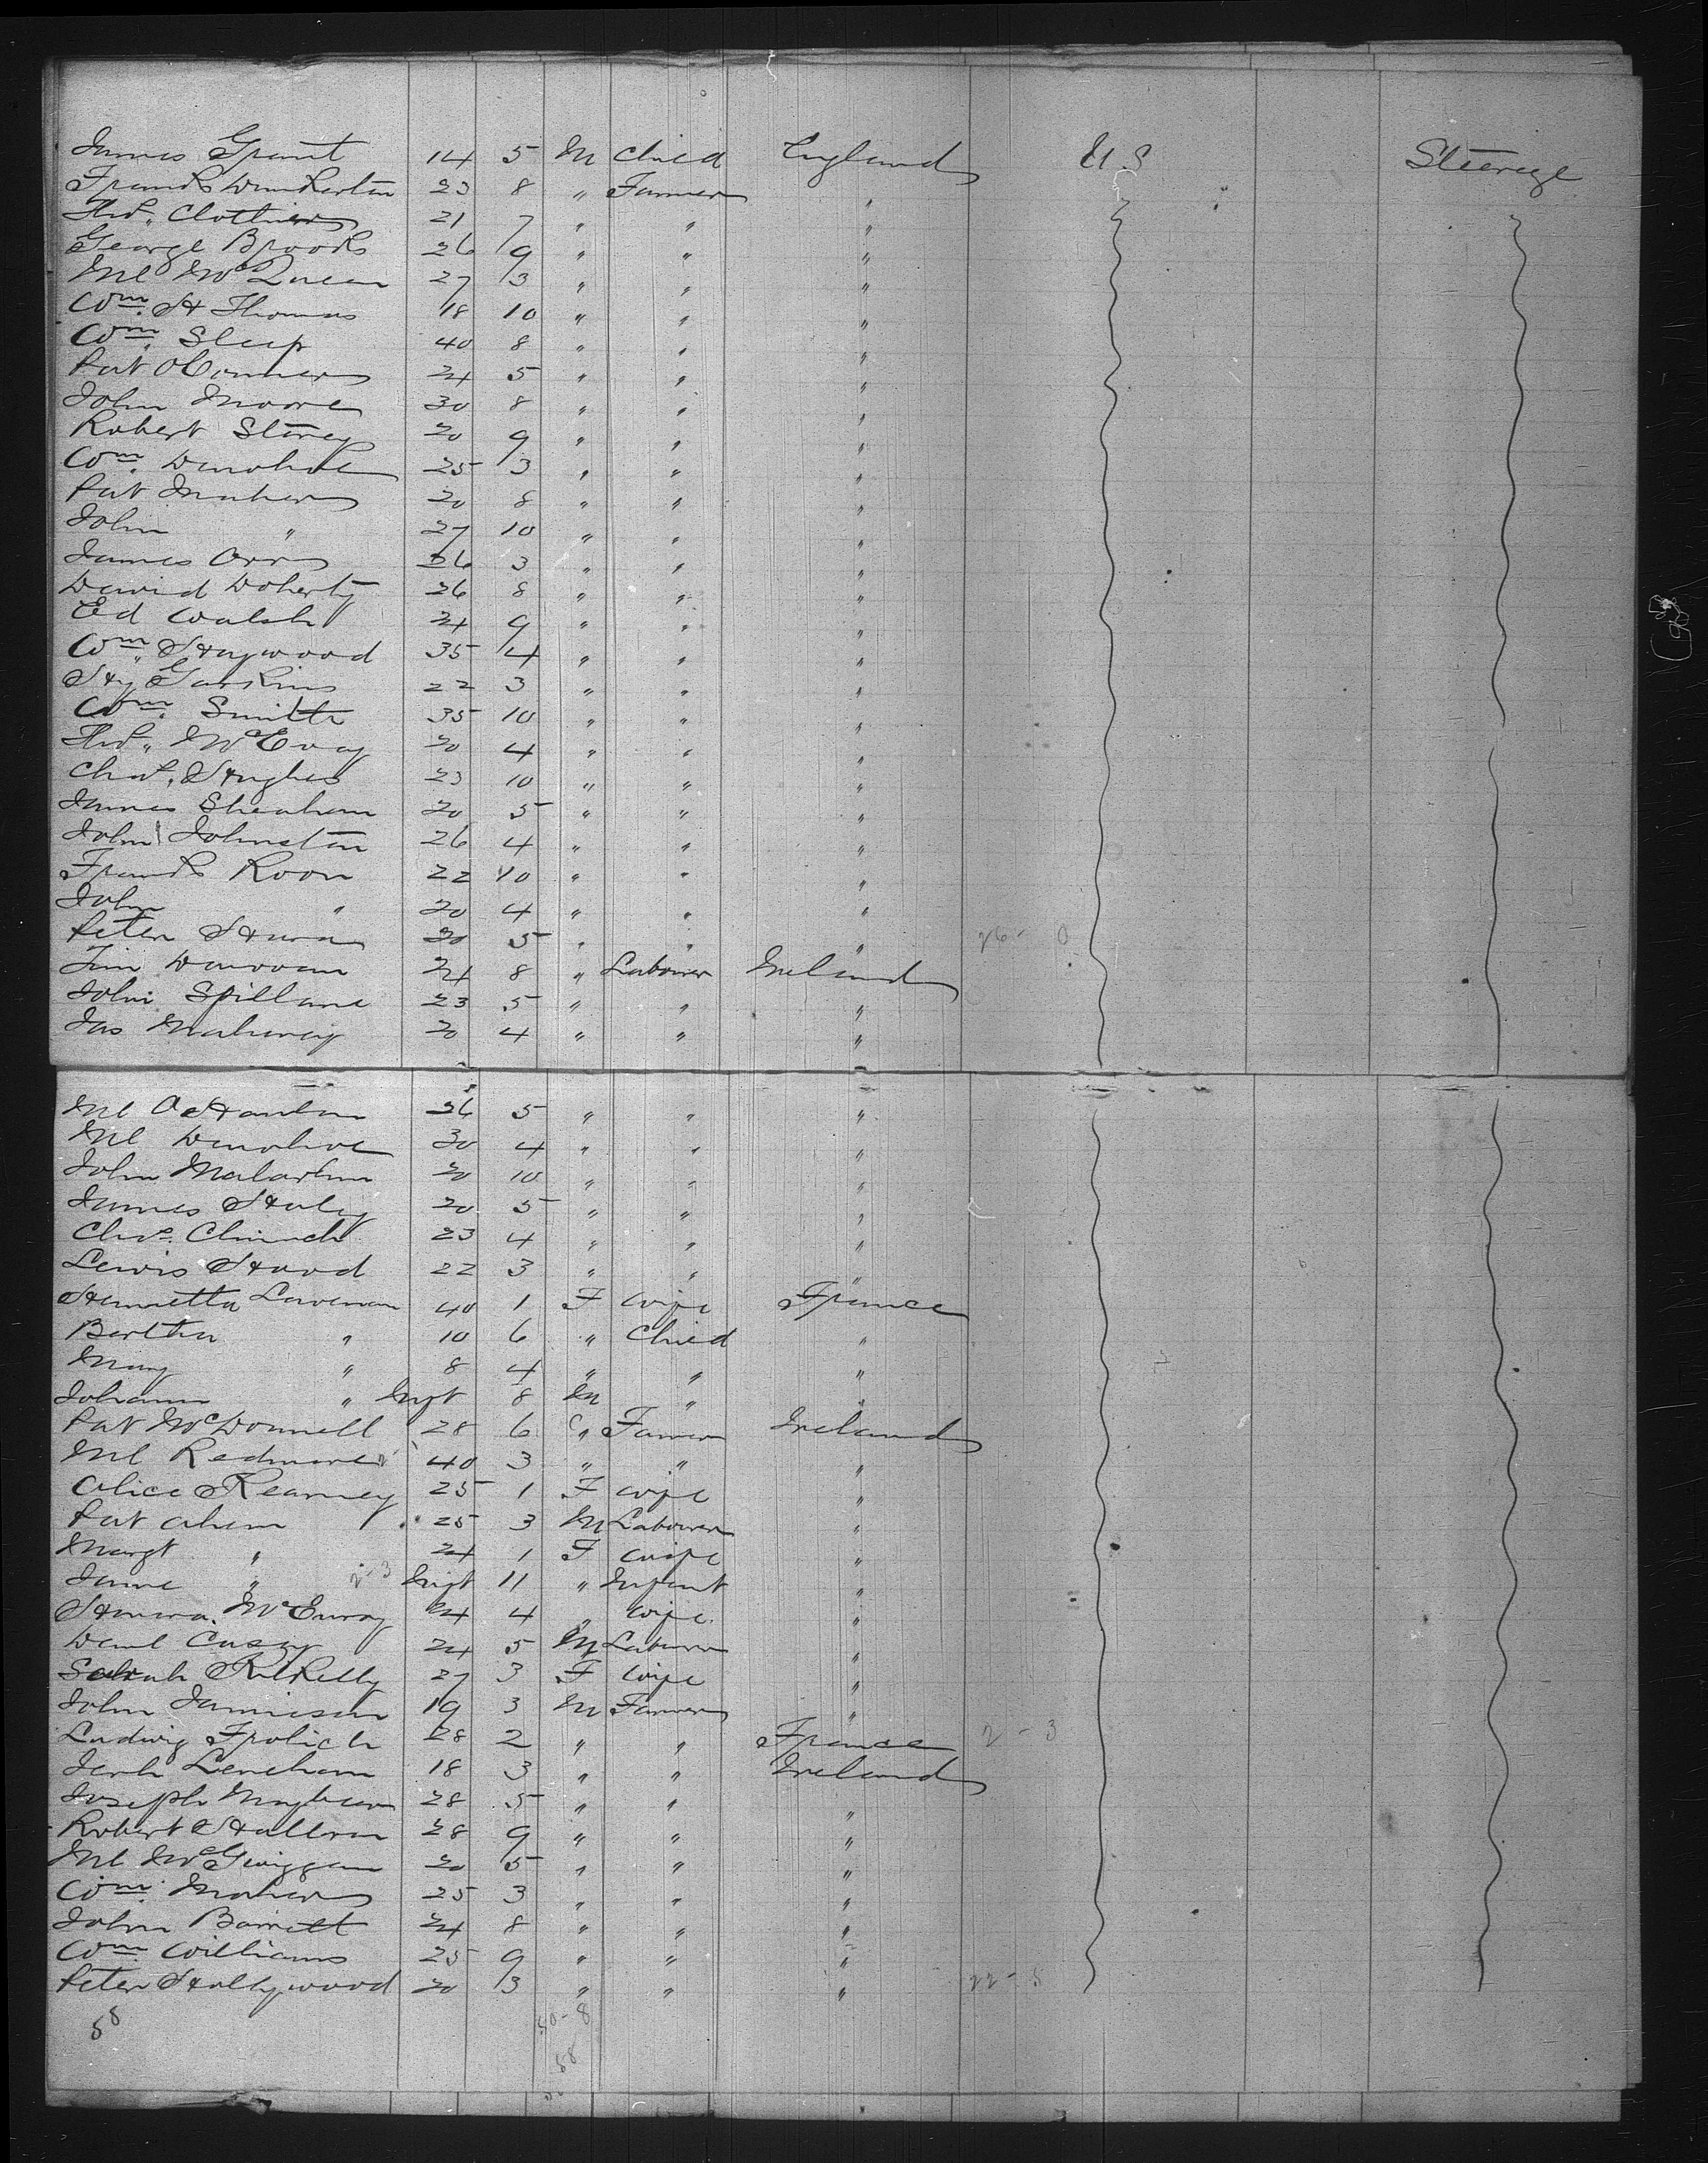 James Grant 14 5 M Child England U S Steerage
Frank Dunkerton 23 8 " Farmer "
Thos. Clothier 21 7 " " "
George Brooks 26 9 " " "
Ml McQueen 27 3 " " "
Wm. H Thomas 18 10 " " "
Wm. Sleep 40 8 " " "
Pat OConnor 24 5 " " "
John Moore 30 8 " " "
Robert Storey 20 9 " " "
Wm. Donohoe 25 3 " " "
Pat Maher 20 8 " " "
John " 27 10 " " "
James Orr 26 3 " " "
David Doherty 26 8 " " "
Ed Walsh 24 9 " " "
Wm. Haywood 35 4 " " "
Hy Gaskins 22 3 " " "
Wm. Smith 35 10 " " "
Thos. McEvoy 20 4 " " "
Chas. Hughes 23 10 " " "
James Sheahan 20 5 " " "
John Johnston 26 4 " " "
Frank Koon 22 10 " " "
John " 20 4 " " "
Peter 30 5 " " " 26 - 0
Tim Donovan 24 8 " Labourer Ireland
John Spillane 23 5 " " "
Jas Mahoney 20 4 " " "
Ml OHanlon 26 5 " " "
Ml Donohoe 30 4 " " "
John Malarkin 20 10 " " "
James Haley 20 5 " " "
Chas. Chinnch 23 4 " " "
Lewis Hood 22 3 " " "
Henrietta Laveman 40 1 F Wife France
Bertha " 10 6 " Child "
Mary " 8 4 " " "
Johann " Inft 8 M " "
Pat McDonnell 28 6 " Farmer Ireland
Ml Redmond 40 3 " " "
Alice Kearney 25 1 F Wife "
Pat Ahern 25 3 M Labourer "
Margt " 24 1 F Wife "
Jane " 2-3 Inft 11 " Infant "
Honora McEnroy 24 4 " Wife "
Danl Casey 24 5 M Labourer "
Sarah Kilkelly 27 3 F Wife "
John Jamieson 19 3 M Farmer "
Ludwig Frolich 28 2 " " France 2 - 3
Jerh Lenehan 18 3 " " Ireland
Joseph 28 5 " " "
Robert Halloran 28 9 " " "
Ml McGuiggan 20 5 " " "
Wm. Maher 25 3 " " "
John Barrett 24 8 " " "
Wm. Williams 25 9 " " "
Peter Hollywood 20 3 " " " 22 - 5
58 50-8
58